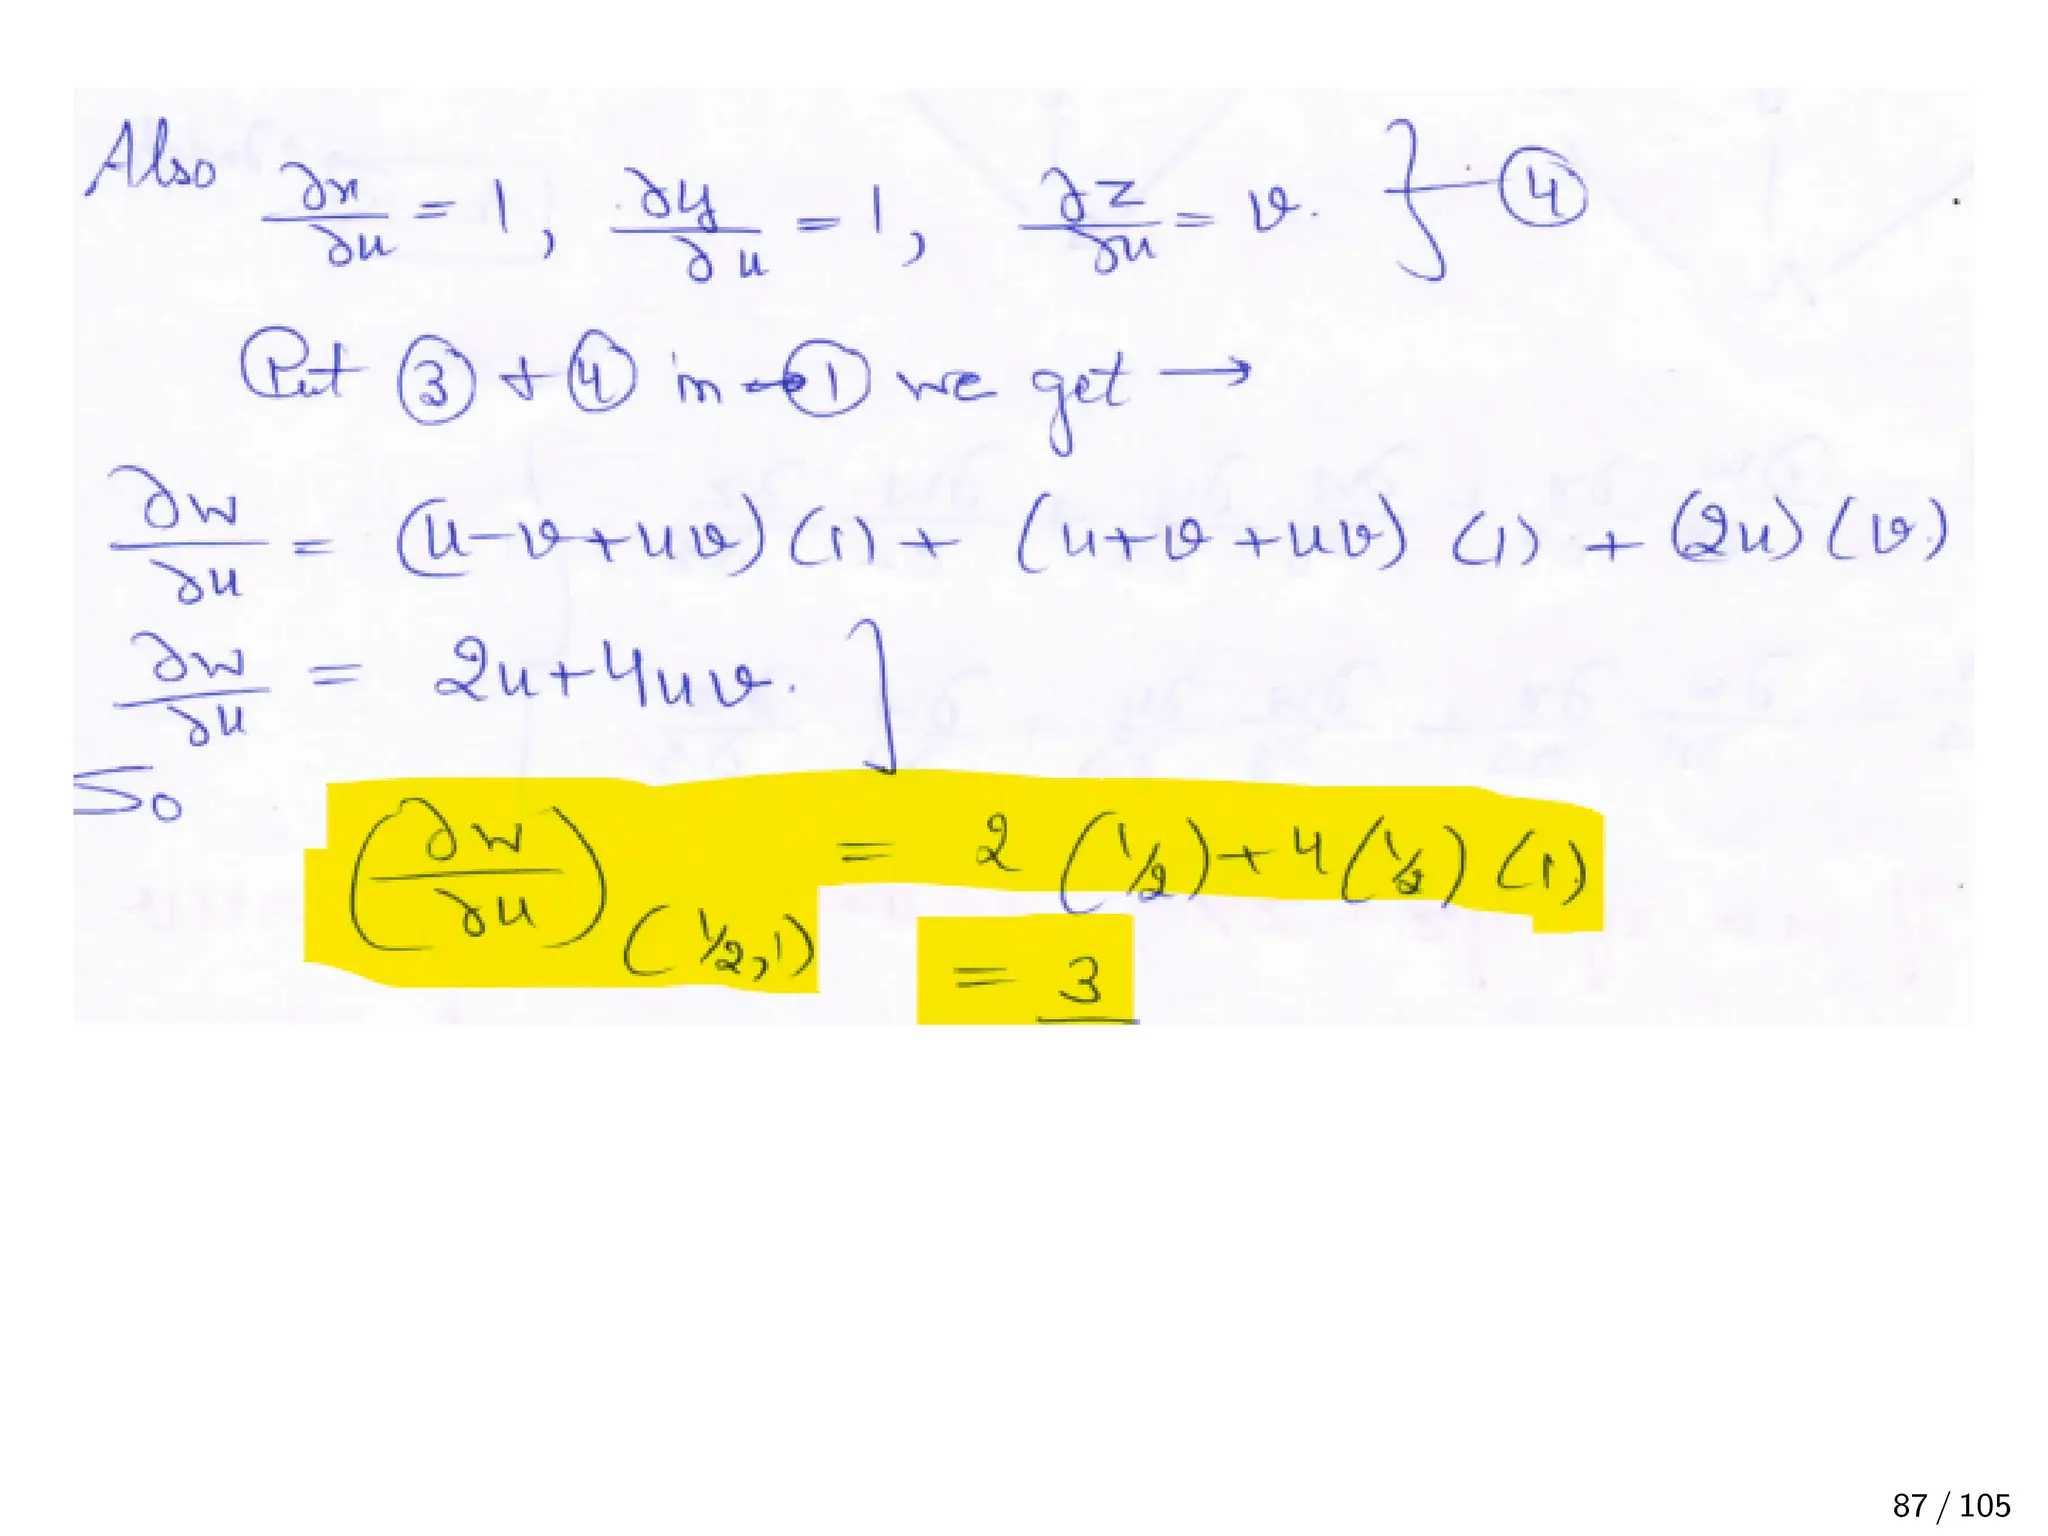 Also ∂x/∂u = 1, ∂y/∂u = 1, ∂z/∂u = v. } — ④
Put ③ + ④ in ① we get →
∂w/∂u = (u-v+uv)(1) + (u+v+uv)(1) + (2u)(v)
∂w/∂u = 2u+4uv. ]
So
(∂w/∂u)(1/2,1) = 2(1/2)+4(1/2)(1)
= 3
87 / 105